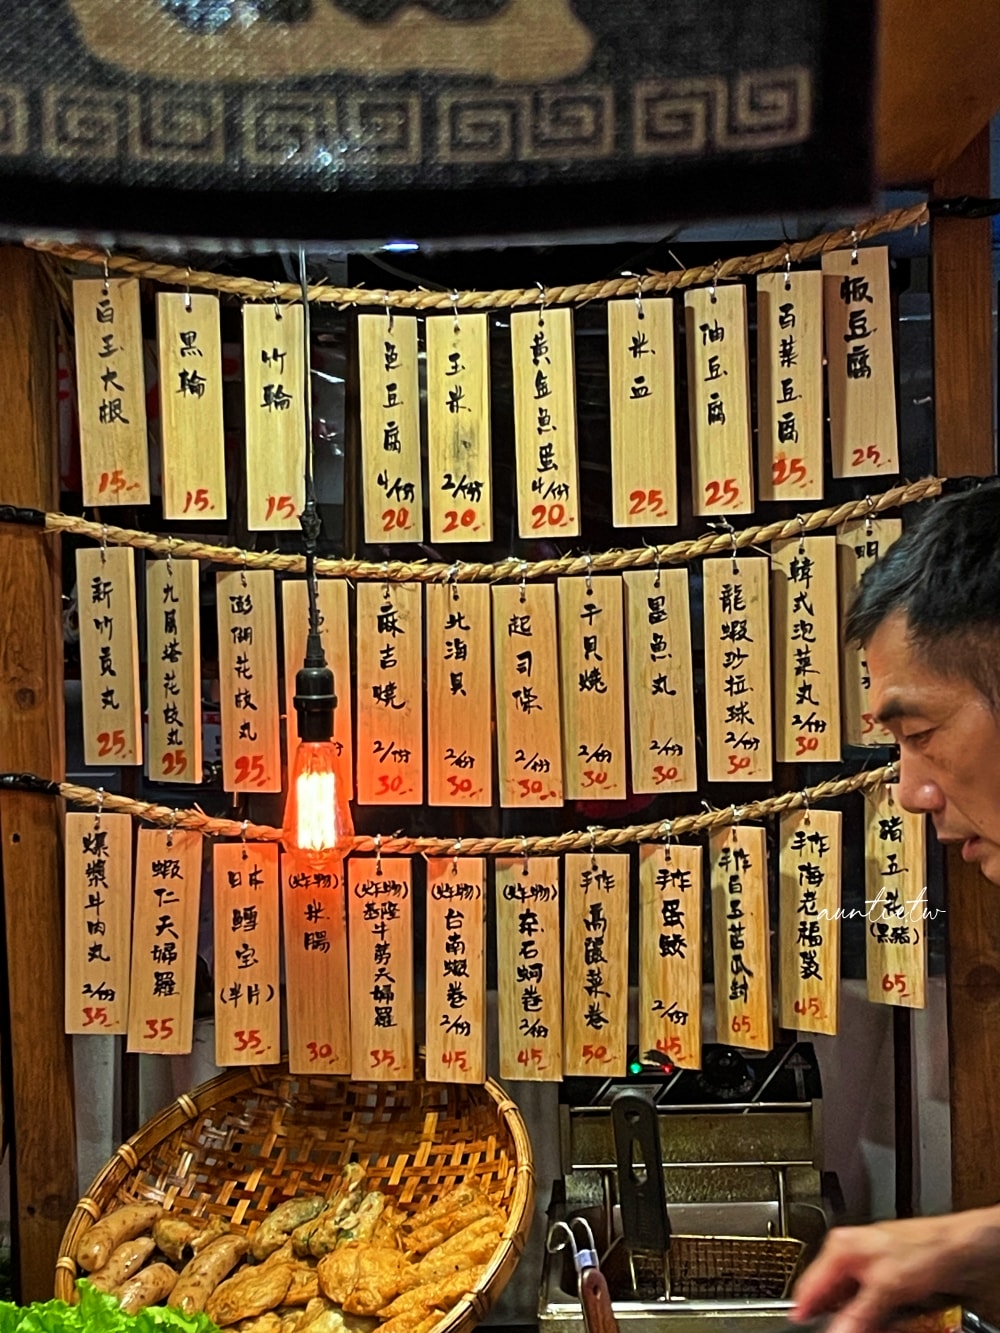 白玉大根
15.
黑輪
15.
竹輪
15.
魚豆腐
4/份
20.
玉米
2/份
20.
黃金魚蛋
4/份
20.
米血
25
油豆腐
25
百葉豆腐
25.
板豆腐
25.
新竹貢丸
25.
九層塔花枝丸
25
澎湖花枝丸
25
麻吉燒
2/份
30
北海貝
2/份
30
起司條
2/份
30
干貝燒
2/份
30
墨魚丸
2/份
30
龍蝦沙拉球
2/份
30
韓式泡菜丸
2/份
30
明
爆漿牛肉丸
2/份
35.
蝦仁天婦羅
35
日本鱈宝
(半片)
35.
(炸物)
米腸
30.
(炸物)
基隆牛蒡天婦羅
35.
(炸物)
台南蝦卷
2/份
45
(炸物)
東石蚵卷
2/份
45
手作
高麗菜卷
50
手作
蛋餃
2/份
45
手作
白玉苦瓜封
65
手作
海老福袋
45
豬五花
(黑豬)
65
auntietw